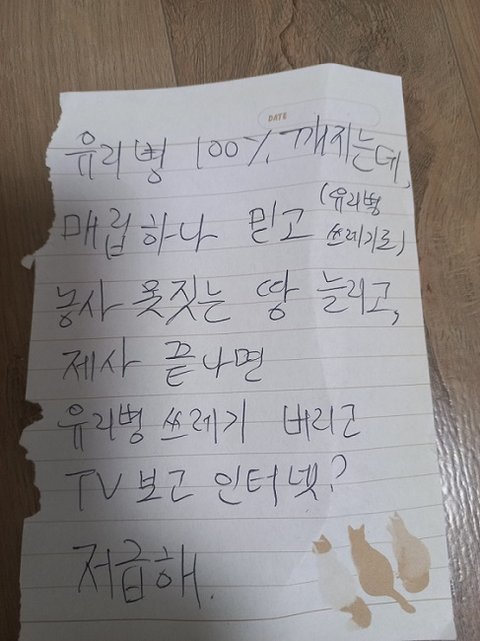 DATE
유리병 100% 깨지는데,
매립하나 믿고 (유리병 쓰레기로)
농사 못짓는 땅 늘리고,
제사 끝나면
유리병 쓰레기 버리고
TV 보고 인터넷?
저급해.